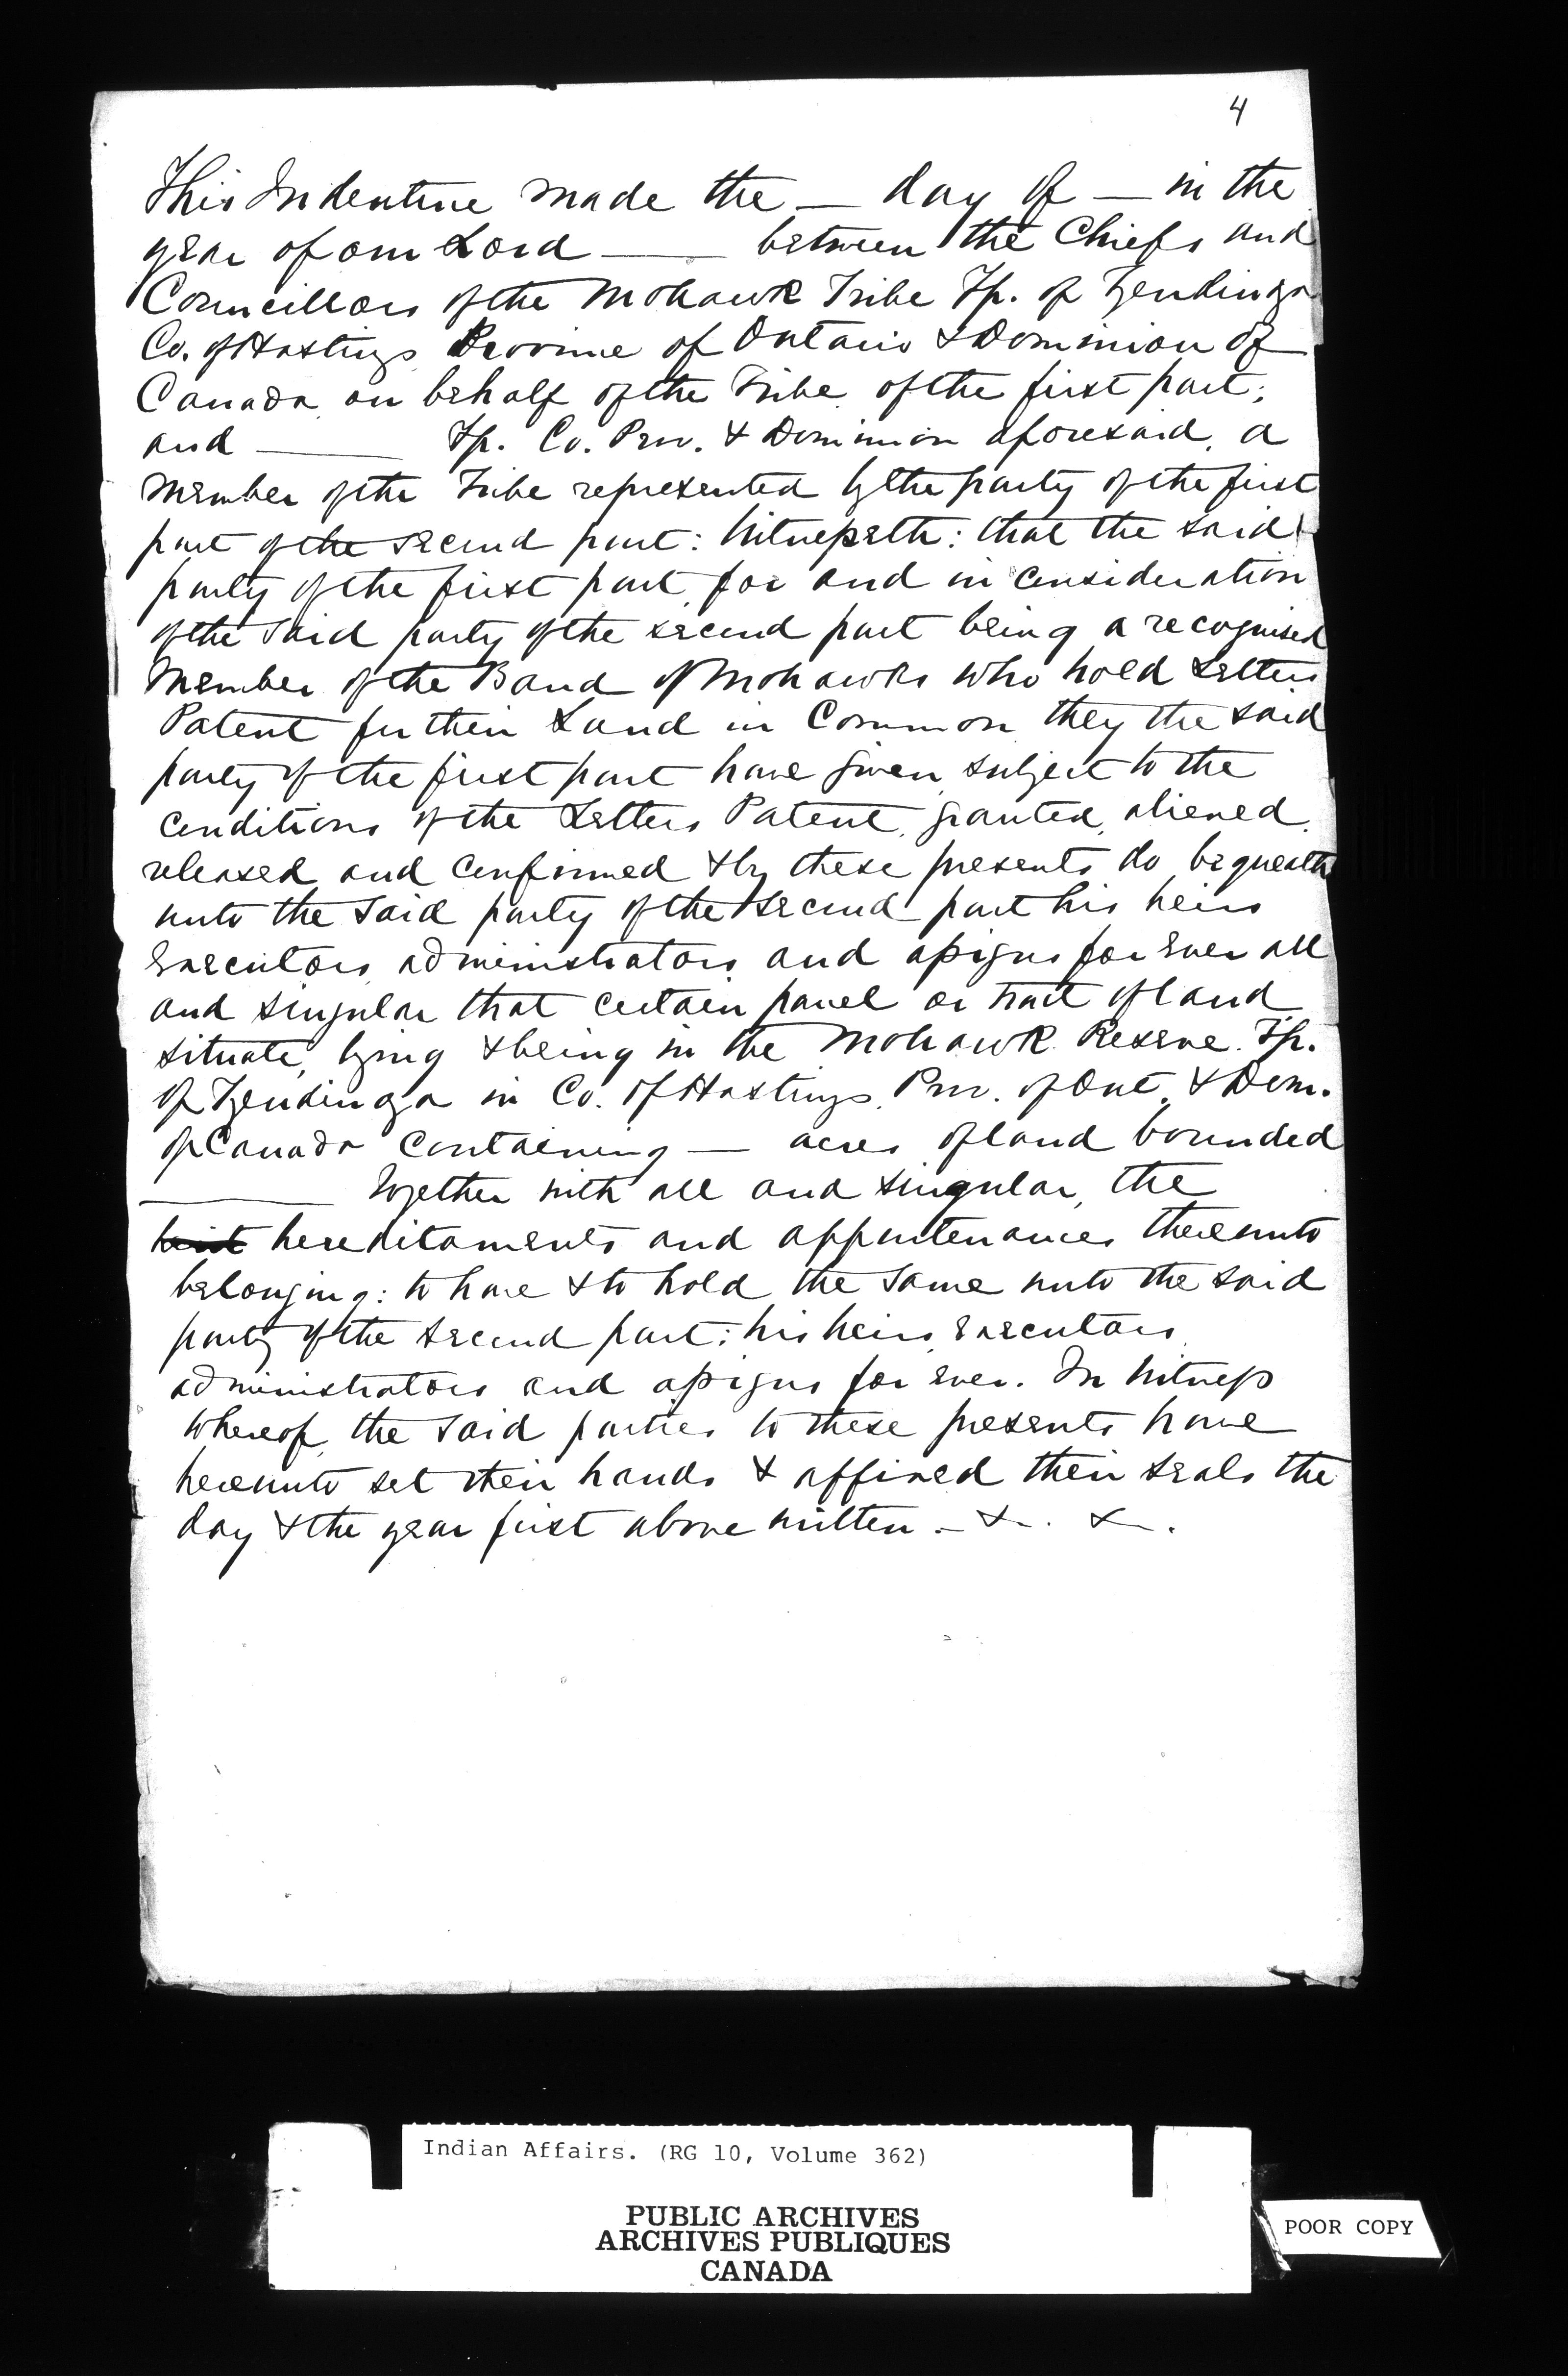 4
This Indenture made the — day of — in the
year of our Lord —— between the Chiefs and
Councillors of the Mohawk Tribe Tp. of Tyendinaga
Co. of Hastings Province of Ontario & Dominion of
Canada, on behalf of the Tribe, of the first part;
and —— Tp. Co. Prov. & Dominion aforesaid, a
Member of the Tribe represented by the party of the first
part of the second part: Witnesseth: that the said
party of the first part, for and in consideration
of the said party of the second part being a recognised
Member of the Band of Mohawks who hold Letters
Patent for their Land in Common they the said
party of the first part have given, subject to the
Conditions of the Letters Patent, granted, aliened,
released and confirmed & by these presents do bequeath
unto the said party of the second part his heirs
Executors, administrators, and assigns for ever all
and singular that certain parcel or tract of land
situate, lying & being in the Mohawk Reserve. Tp.
of Tyendinaga in Co. of Hastings, Prov. of Ont. & Dom.
of Canada Containing — acres of land bounded
—— Together with all and singular, the
hereditaments and appurtenances thereunto
belonging: to have & to hold the same unto the said
party of the second part; his heirs, Executors,
administrators and assigns for ever. In Witness
whereof, the said parties to these presents have
hereunto set their hands & affixed their seals the
day & the year first above written — &. &.
Indian Affairs. (RG 10, Volume 362)
PUBLIC ARCHIVES
ARCHIVES PUBLIQUES
CANADA
POOR COPY